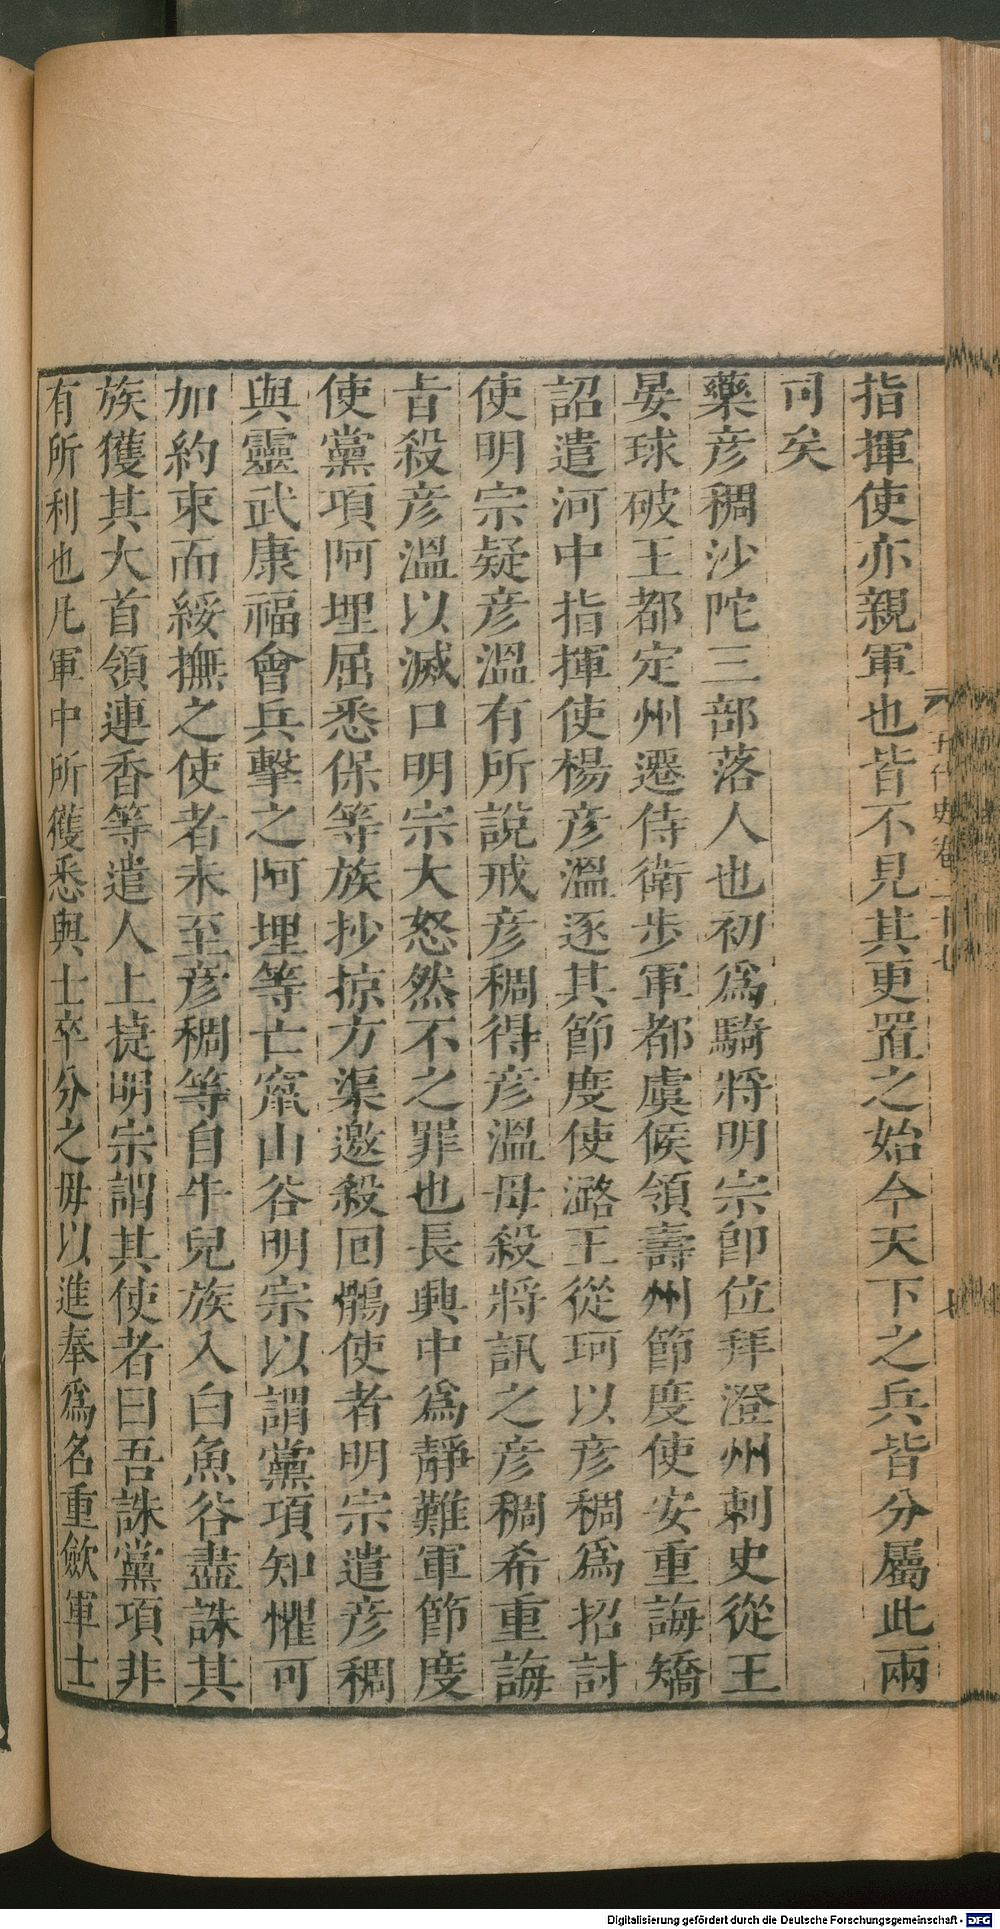 指揮使亦親軍也皆不見其更置之始今天下之兵皆分屬此兩
司矣
藥彥稠沙陀三部落人也初爲騎將明宗卽位拜澄州刺史從王
晏球破王都定州遷侍衛步軍都虞候領壽州節度使安重誨矯
詔遣河中指揮使楊彥溫逐其節度使潞王從珂以彥稠爲招討
使明宗疑彥溫有所說戒彥稠得彥溫毋殺將訊之彥稠希重誨
旨殺彥溫以滅口明宗大怒然不之罪也長興中爲靜難軍節度
使黨項阿埋屈悉保等族抄掠方渠邀殺回鶻使者明宗遣彥稠
與靈武康福會兵擊之阿埋等亡竄山谷明宗以謂黨項知懼可
加約束而綏撫之使者未至彥稠等自牛兒族入白魚谷盡誅其
族獲其大首領連香等遣人上捷明宗謂其使者曰吾誅黨項非
有所利也凡軍中所獲悉與士卒分之毋以進奉爲名重斂軍士
五代史卷二十七
七
Digitalisierung gefördert durch die Deutsche Forschungsgemeinschaft - DFG